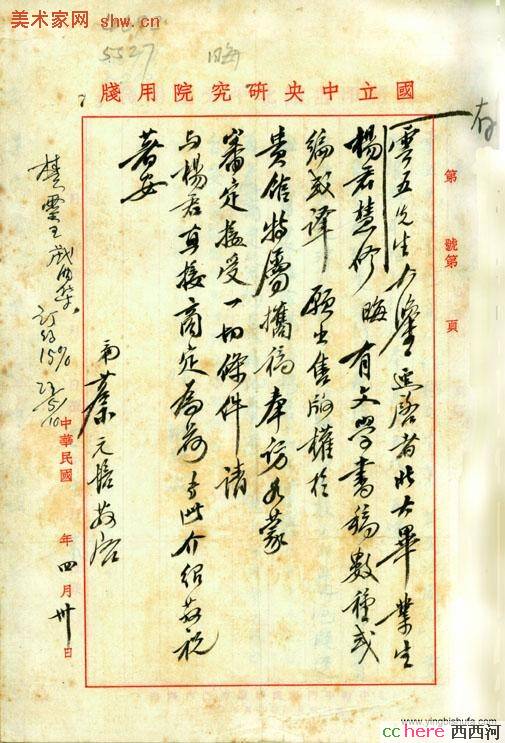 美术家网 shw.cn
5527
晦
國立中央研究院用牋
存
第 號第 頁
雲五先生大鑒逕啓者北大畢業生
楊君慧修晦有文學書稿數種或
編或譯願出售版權於
貴館特屬攜稿奉訪如蒙
審定接受一切條件請
与楊君直接商定為荷專此介紹並祝
著安
弟蔡元培敬啓
訂約15%
中華民國 年四月卅日
www.yingbishufa.com
cchere 西西河